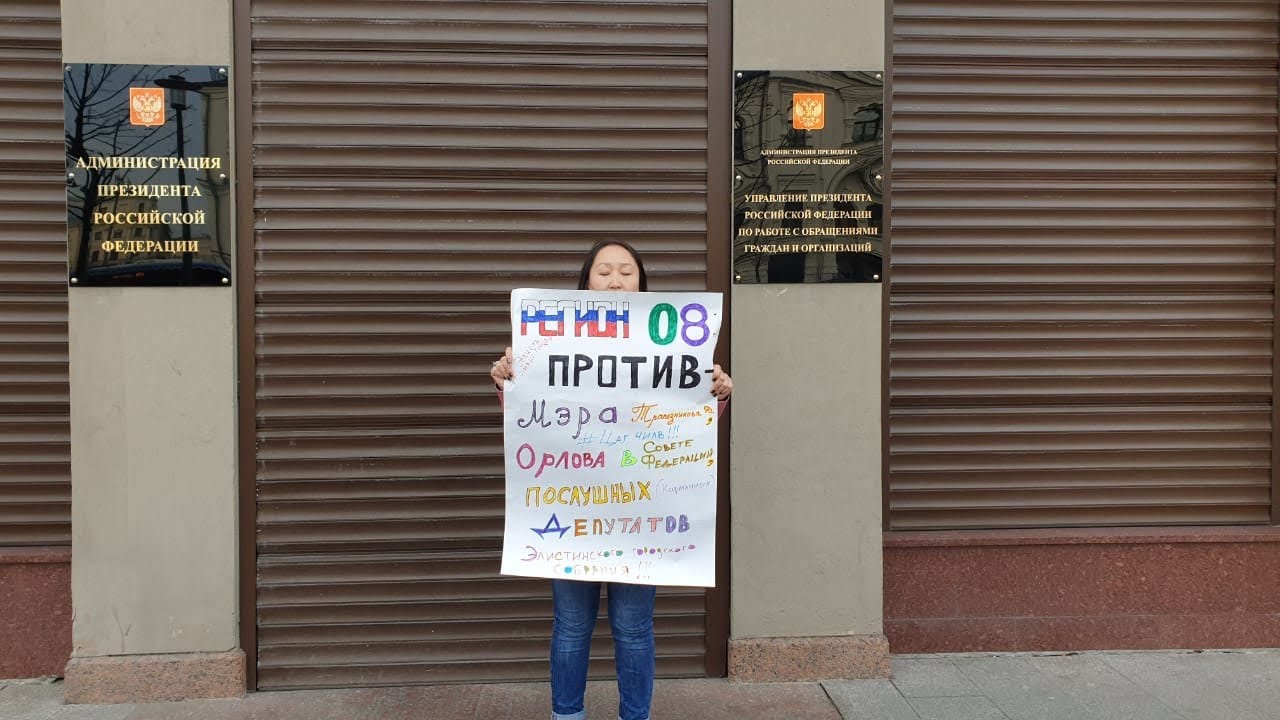 АДМИНИСТРАЦИЯ
ПРЕЗИДЕНТА
РОССИЙСКОЙ
ФЕДЕРАЦИИ
АДМИНИСТРАЦИЯ ПРЕЗИДЕНТА
РОССИЙСКОЙ ФЕДЕРАЦИИ
УПРАВЛЕНИЕ ПРЕЗИДЕНТА
РОССИЙСКОЙ ФЕДЕРАЦИИ
ПО РАБОТЕ С ОБРАЩЕНИЯМИ
ГРАЖДАН И ОРГАНИЗАЦИЙ
РЕГИОН 08:
ПРОТИВ-
Мэра Трапезникова Д,
# Цаг чилв!!!
Орлова в Совете
Федераций,
ПОСЛУШНЫХ
ДЕПУТАТОВ
Элистинского городского
СОБРАНИЯ!!!